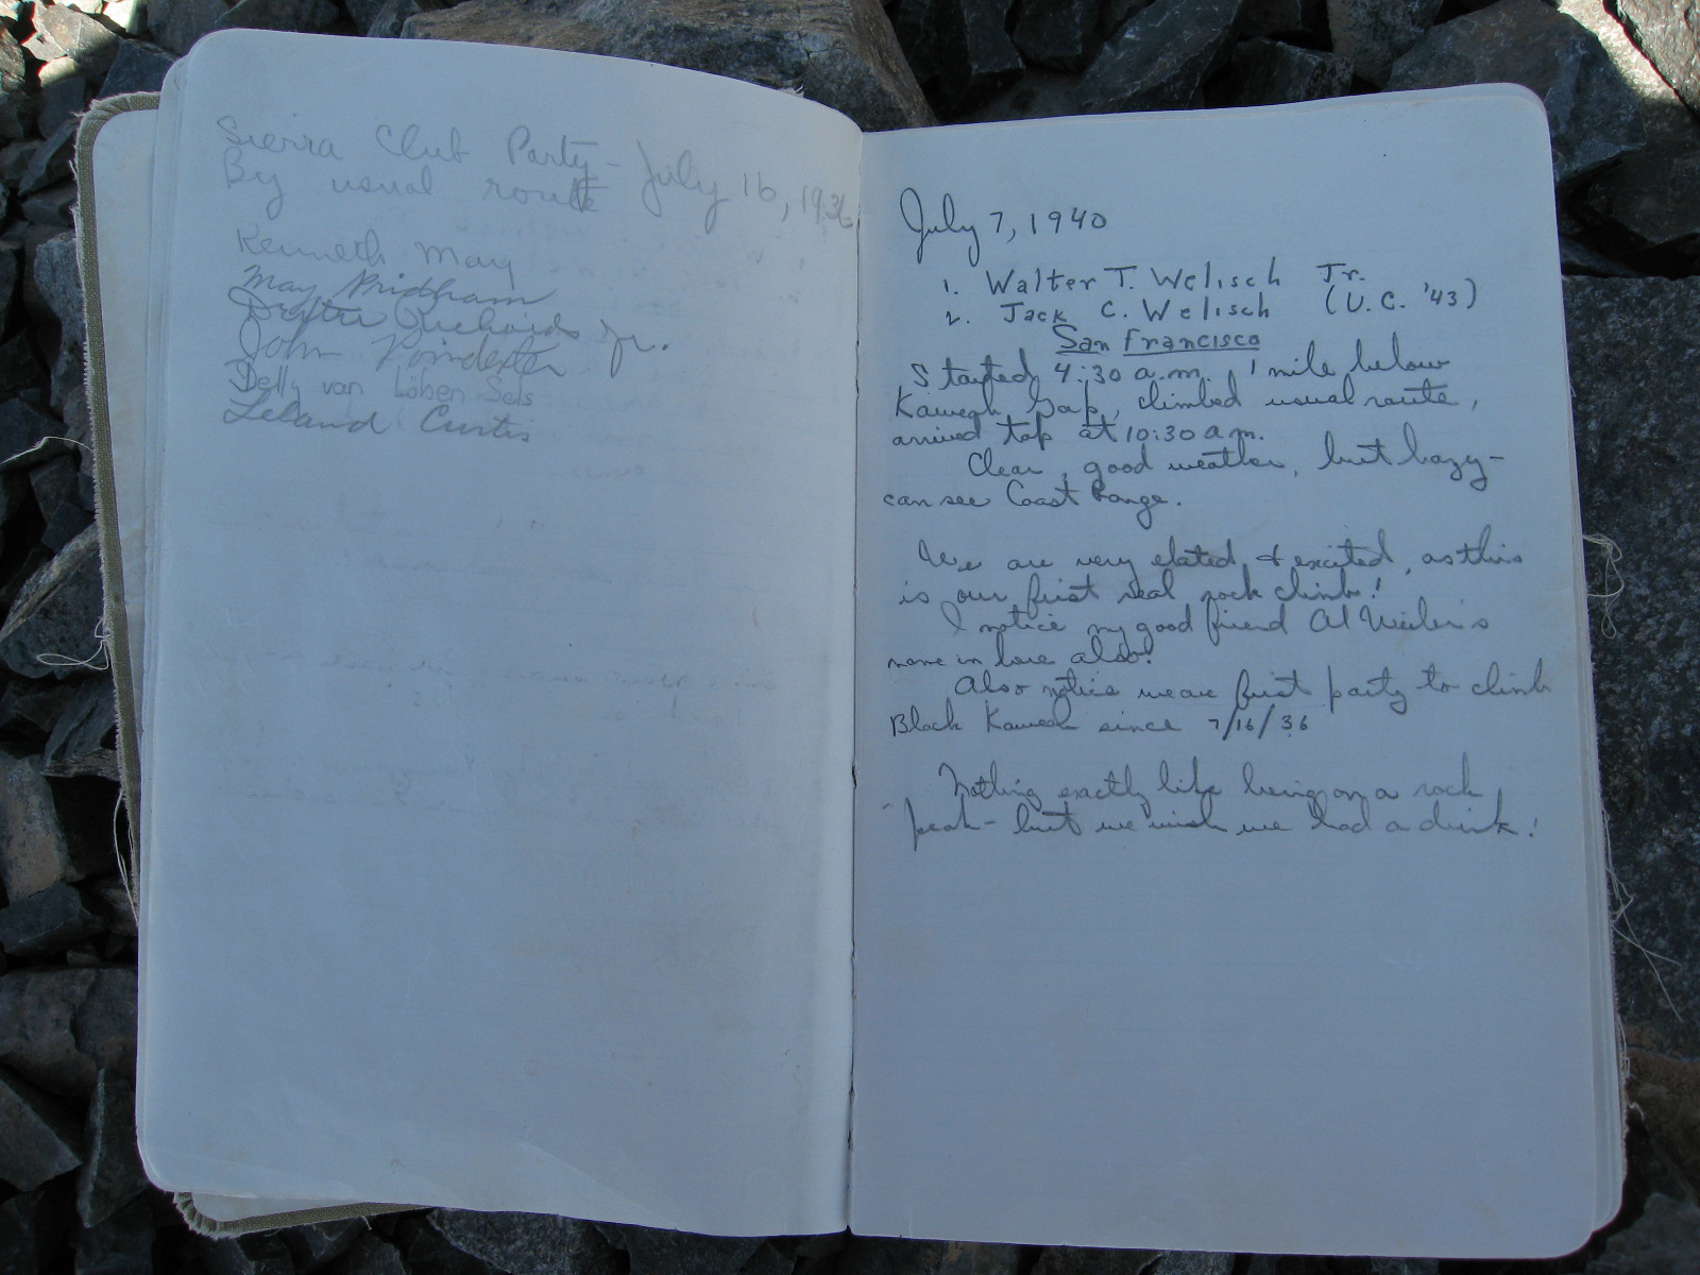 Sierra Club Party - July 16, 1936
By usual route
Kenneth May
May Pridham
Dexter Richards Jr.
John Poindexter
Delly van Löben Sels
Leland Curtis
July 7, 1940
1. Walter T. Welisch Jr.
2. Jack C. Welisch (U.C. '43)
San Francisco
Started 4:30 a.m. 1 mile below
Kaweah Gap, climbed usual route,
arrived top at 10:30 a.m.
Clear, good weather, but hazy-
can see Coast Range.
We are very elated & excited, as this
is our first real rock climb!
I notice my good friend Al
name in here also!
Also notice we are first party to climb
Black Kaweah since 7/16/36
Nothing exactly like being on a rock
peak - but we wish we had a drink!